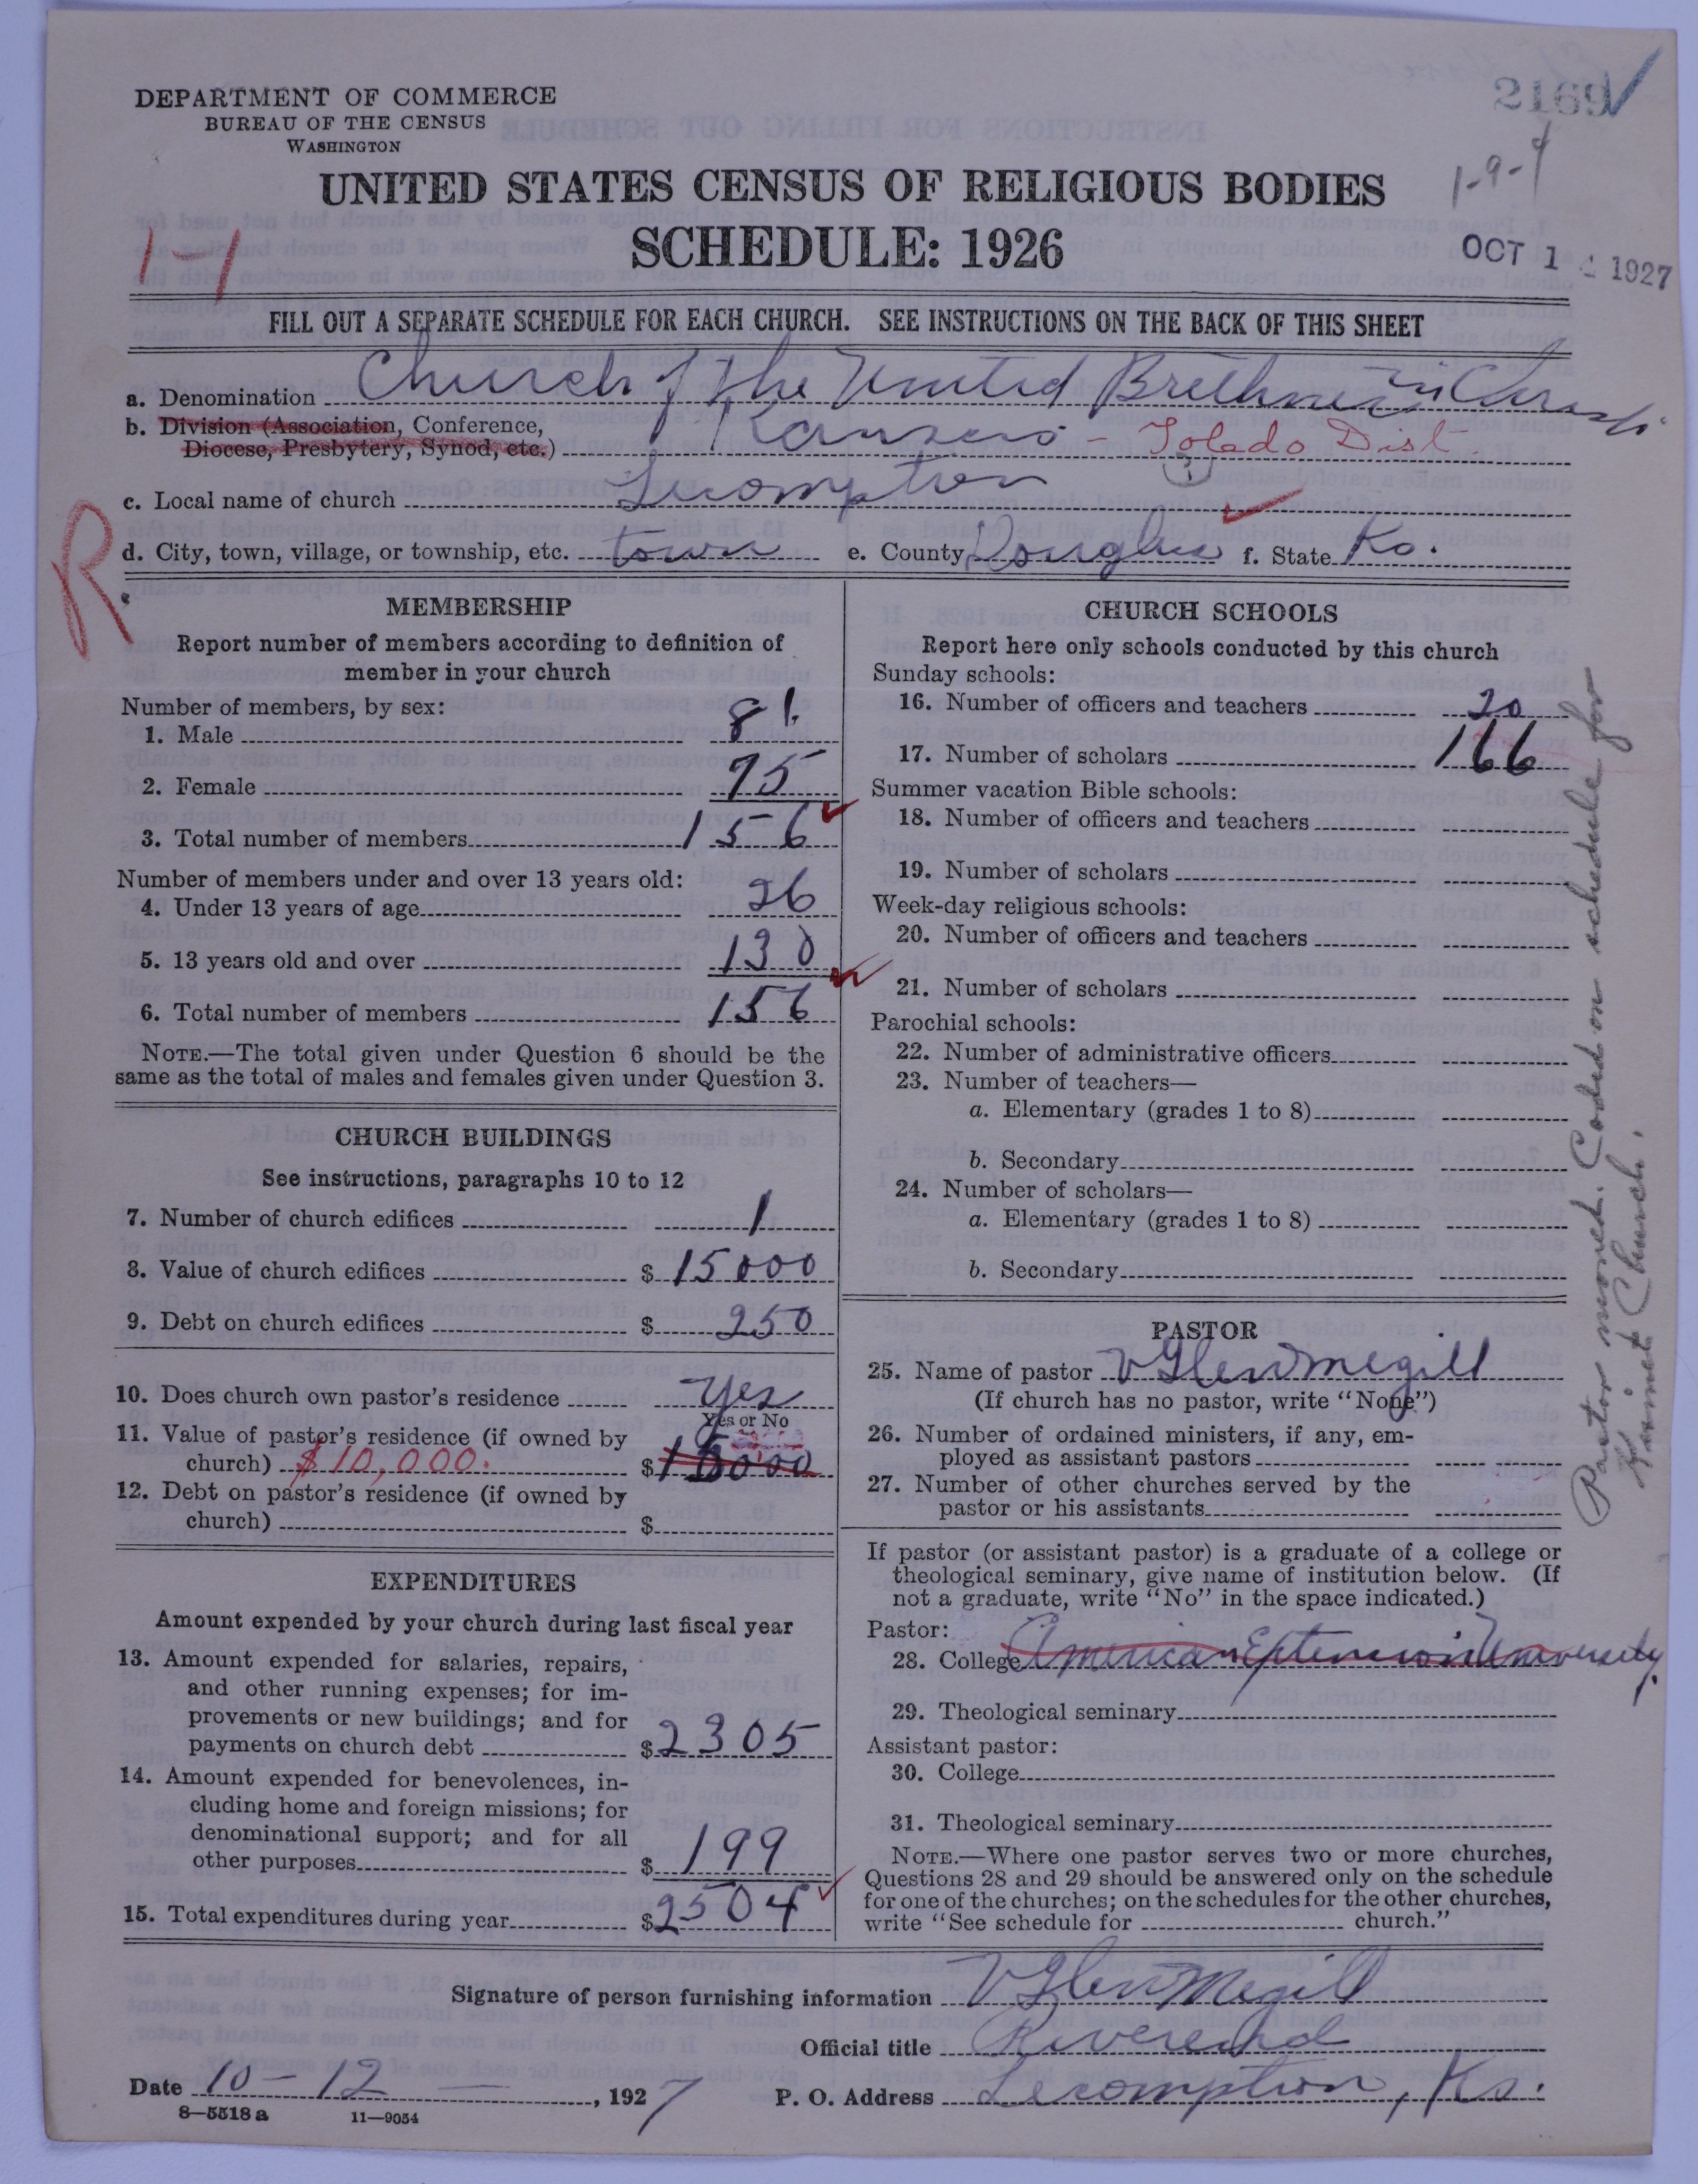 DEPARTMENT OF COMMERCE
BUREAU OF THE CENSUS
WASHINGTON
2169
1-9-4
UNITED STATES CENSUS OF RELIGIOUS BODIES
SCHEDULE: 1926
1-1
OCT 1 1927
FILL OUT A SEPARATE SCHEDULE FOR EACH CHURCH. SEE INSTRUCTIONS ON THE BACK OF THIS SHEET
a. Denomination Church of the United Brethren in Christ
b. Division (Association, Conference, Diocese, Presbytery, Synod, etc.) Kansas - Toledo Dist
c. Local name of church Lecompton
d. City, town, village, or township, etc. town e. County Douglas f. State Ks.
R
MEMBERSHIP
Report number of members according to definition of
member in your church
Number of members, by sex:
1. Male 81
2. Female 75
3. Total number of members 156
Number of members under and over 13 years old:
4. Under 13 years of age 26
5. 13 years old and over 130
6. Total number of members 156
NOTE.—The total given under Question 6 should be the
same as the total of males and females given under Question 3.
CHURCH BUILDINGS
See instructions, paragraphs 10 to 12
7. Number of church edifices 1
8. Value of church edifices $ 15000
9. Debt on church edifices $ 250
10. Does church own pastor's residence yes
Yes or No
11. Value of pastor's residence (if owned by
church) $10,000. $ 15000
12. Debt on pastor's residence (if owned by
church) $
EXPENDITURES
Amount expended by your church during last fiscal year
13. Amount expended for salaries, repairs,
and other running expenses; for im-
provements or new buildings; and for
payments on church debt $ 2305
14. Amount expended for benevolences, in-
cluding home and foreign missions; for
denominational support; and for all
other purposes $ 199
15. Total expenditures during year $ 2504
CHURCH SCHOOLS
Report here only schools conducted by this church
Sunday schools:
16. Number of officers and teachers 20
17. Number of scholars 166
Summer vacation Bible schools:
18. Number of officers and teachers
19. Number of scholars
Week-day religious schools:
20. Number of officers and teachers
21. Number of scholars
Parochial schools:
22. Number of administrative officers
23. Number of teachers—
a. Elementary (grades 1 to 8)
b. Secondary
24. Number of scholars—
a. Elementary (grades 1 to 8)
b. Secondary
PASTOR
25. Name of pastor V Glen Megill
(If church has no pastor, write "None")
26. Number of ordained ministers, if any, em-
ployed as assistant pastors
27. Number of other churches served by the
pastor or his assistants
If pastor (or assistant pastor) is a graduate of a college or
theological seminary, give name of institution below. (If
not a graduate, write "No" in the space indicated.)
Pastor:
28. College American Extension University
29. Theological seminary
Assistant pastor:
30. College
31. Theological seminary
NOTE.—Where one pastor serves two or more churches,
Questions 28 and 29 should be answered only on the schedule
for one of the churches; on the schedules for the other churches,
write "See schedule for church."
Pastor moved. Coded on schedule for
Church.
Signature of person furnishing information V Glen Megill
Official title Reverend
Date 10-12 , 1927 P. O. Address Lecompton, Ks.
8—5518 a 11—9054